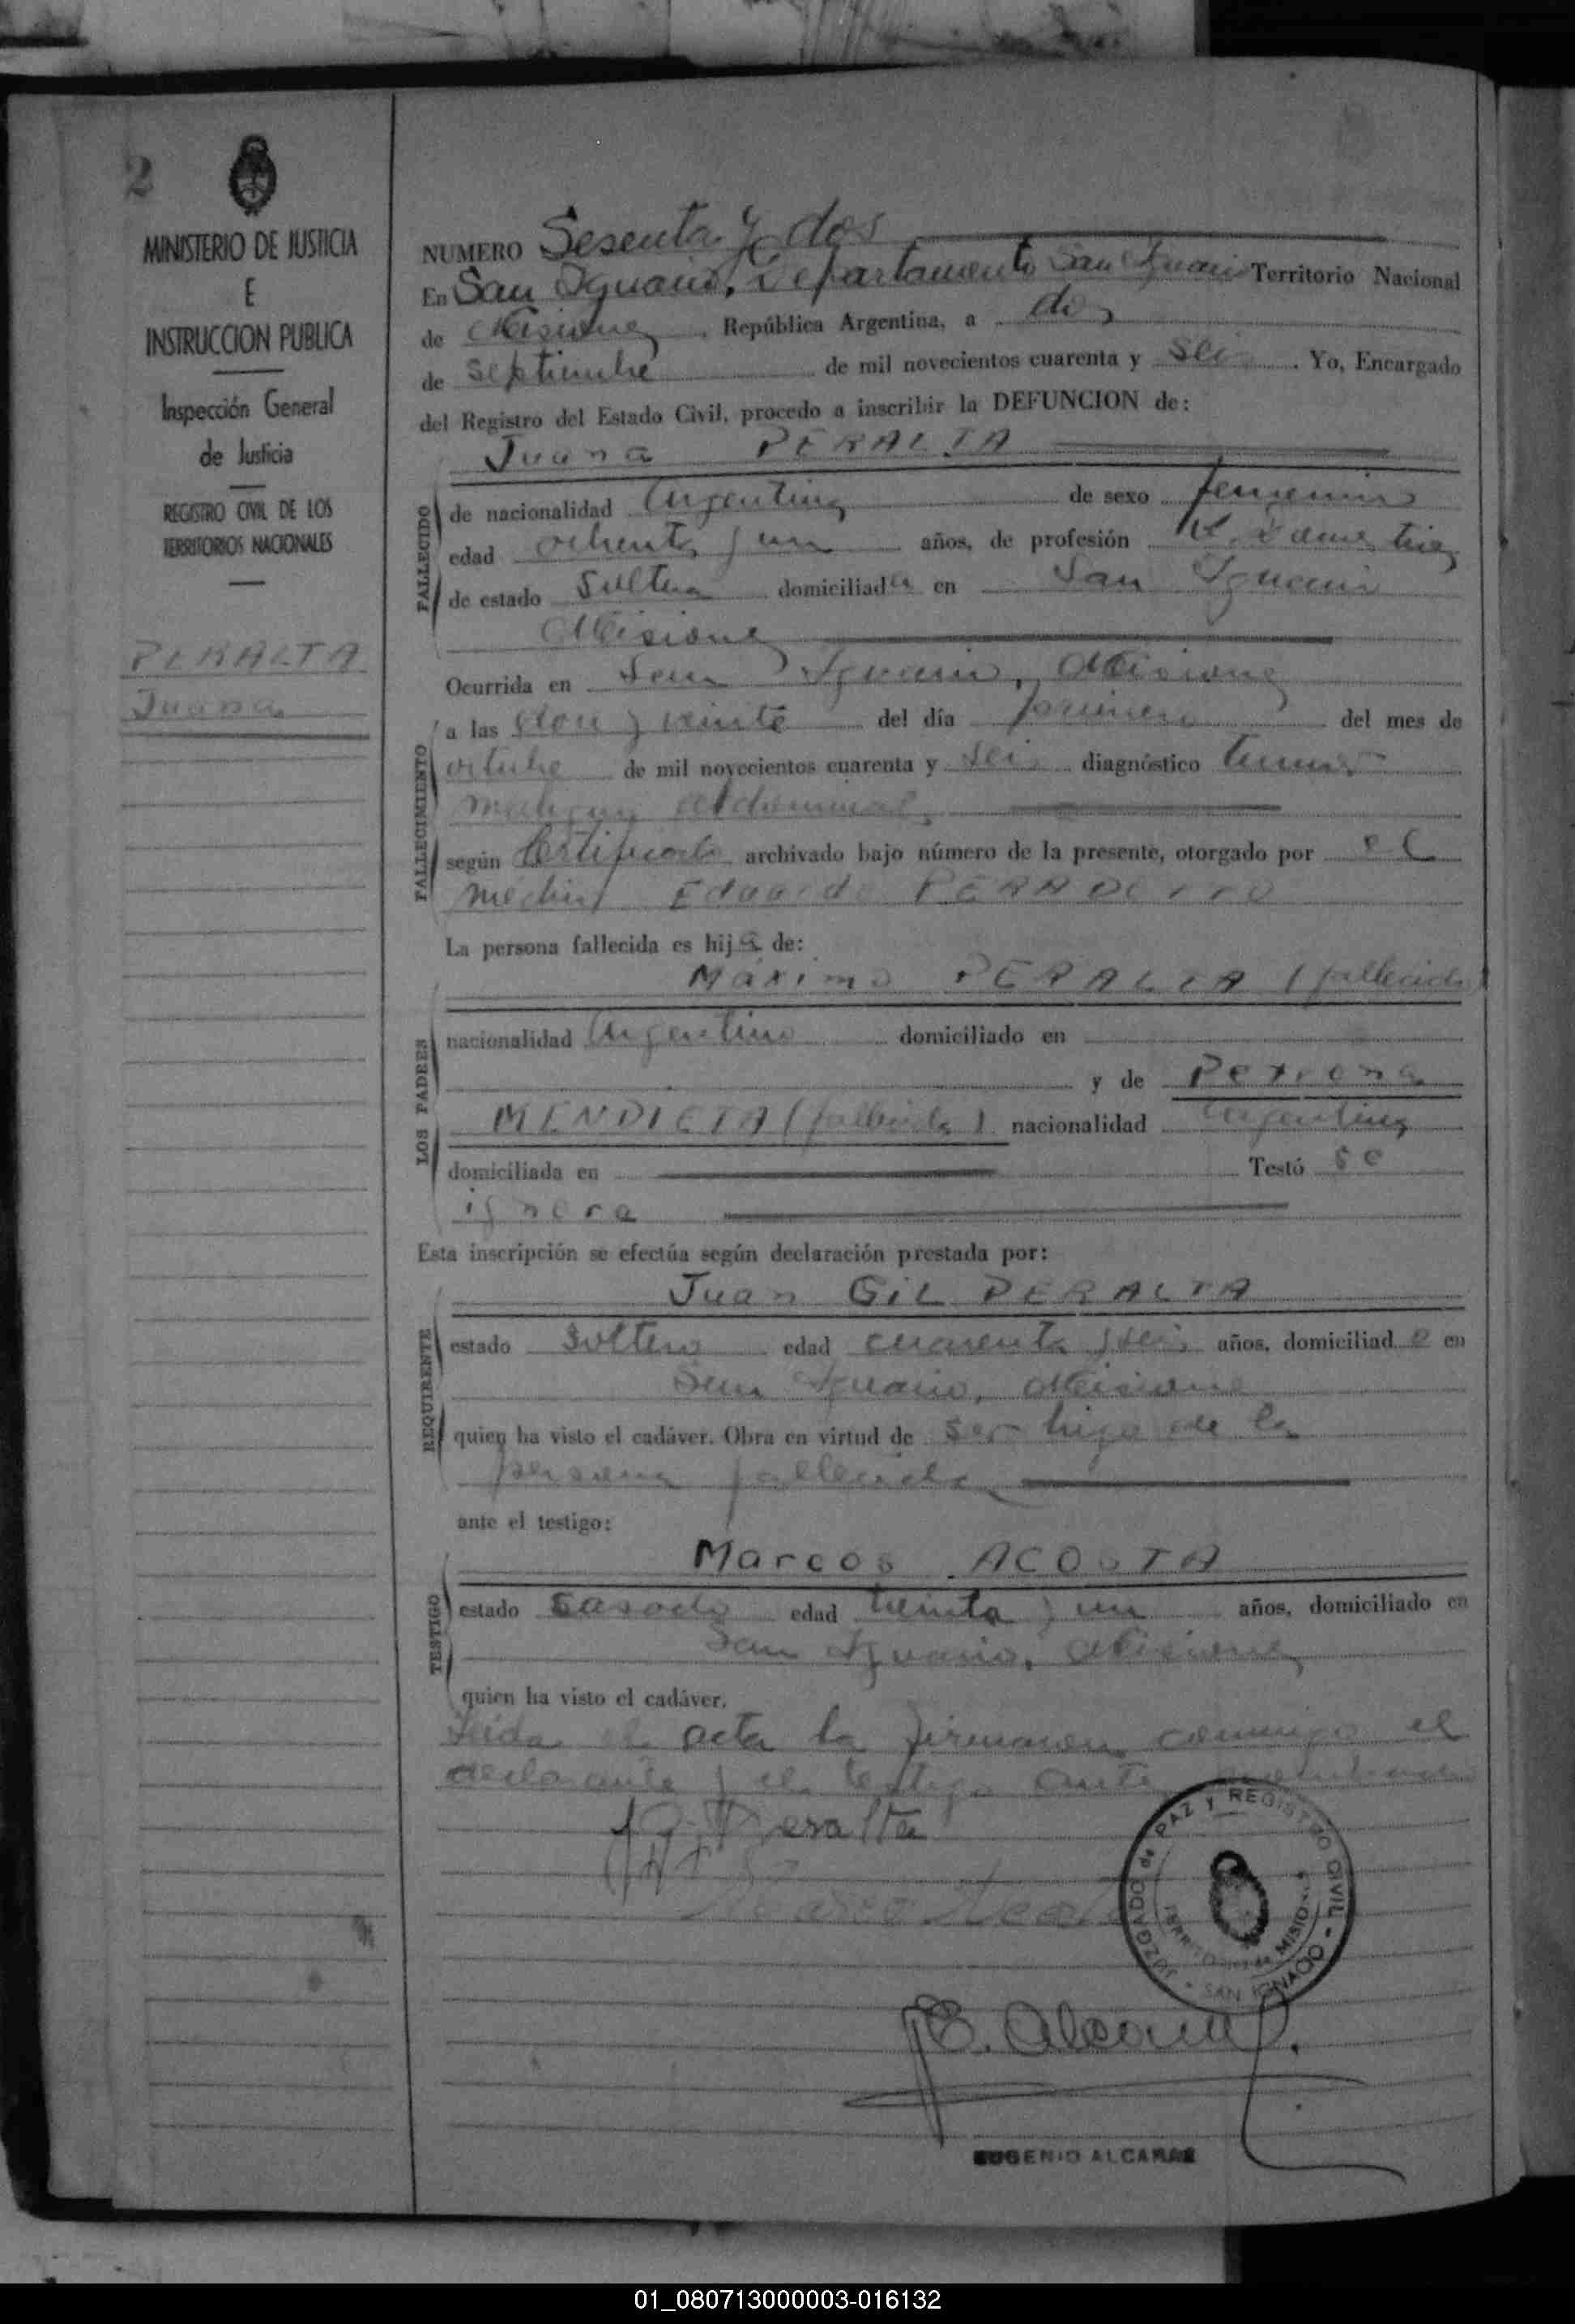 2
MINISTERIO DE JUSTICIA
E
INSTRUCCION PUBLICA
Inspección General
de Justicia
REGISTRO CIVIL DE LOS
TERRITORIOS NACIONALES
PERALTA
Juana
NUMERO Sesenta y dos
En San Ignacio, Departamento San Ignacio Territorio Nacional
de Misiones, República Argentina, a dos
de septiembre de mil novecientos cuarenta y seis. Yo, Encargado
del Registro del Estado Civil, procedo a inscribir la DEFUNCION de:
Juana PERALTA
FALLECIDO
de nacionalidad Argentina de sexo femenino
edad ochenta y un años, de profesión
de estado Soltera domiciliada en San Ignacio
Misiones
FALLECIMIENTO
Ocurrida en San Ignacio, Misiones
a las doce y veinte del día primero del mes de
octubre de mil novecientos cuarenta y seis diagnóstico tumor
maligno abdominal
según Certificado archivado bajo número de la presente, otorgado por el
medico Eduardo
La persona fallecida es hija de:
LOS PADRES
Máximo PERALTA (fallecido)
nacionalidad Argentino domiciliado en
y de Petrona
MENDIETA (fallecida) nacionalidad argentina
domiciliada en Testó se
ignora
Esta inscripción se efectúa según declaración prestada por:
REQUIRENTE
Juan GIL PERALTA
estado Soltero edad cuarenta y seis años, domiciliado en
San Ignacio, Misiones
quien ha visto el cadáver. Obra en virtud de ser hijo de la
persona fallecida
ante el testigo:
TESTIGO
Marcos ACOSTA
estado Casado edad treinta y un años, domiciliado en
San Ignacio, Misiones
quien ha visto el cadáver.
Leida el acta la firmaron conmigo el
declarante y el testigo ante
J.G. Peralta
Marcos Acosta
JUZGADO de PAZ Y REGISTRO CIVIL - SAN IGNACIO
MISIONES
E. Alcaraz
EUGENIO ALCARAZ
01_080713000003-016132